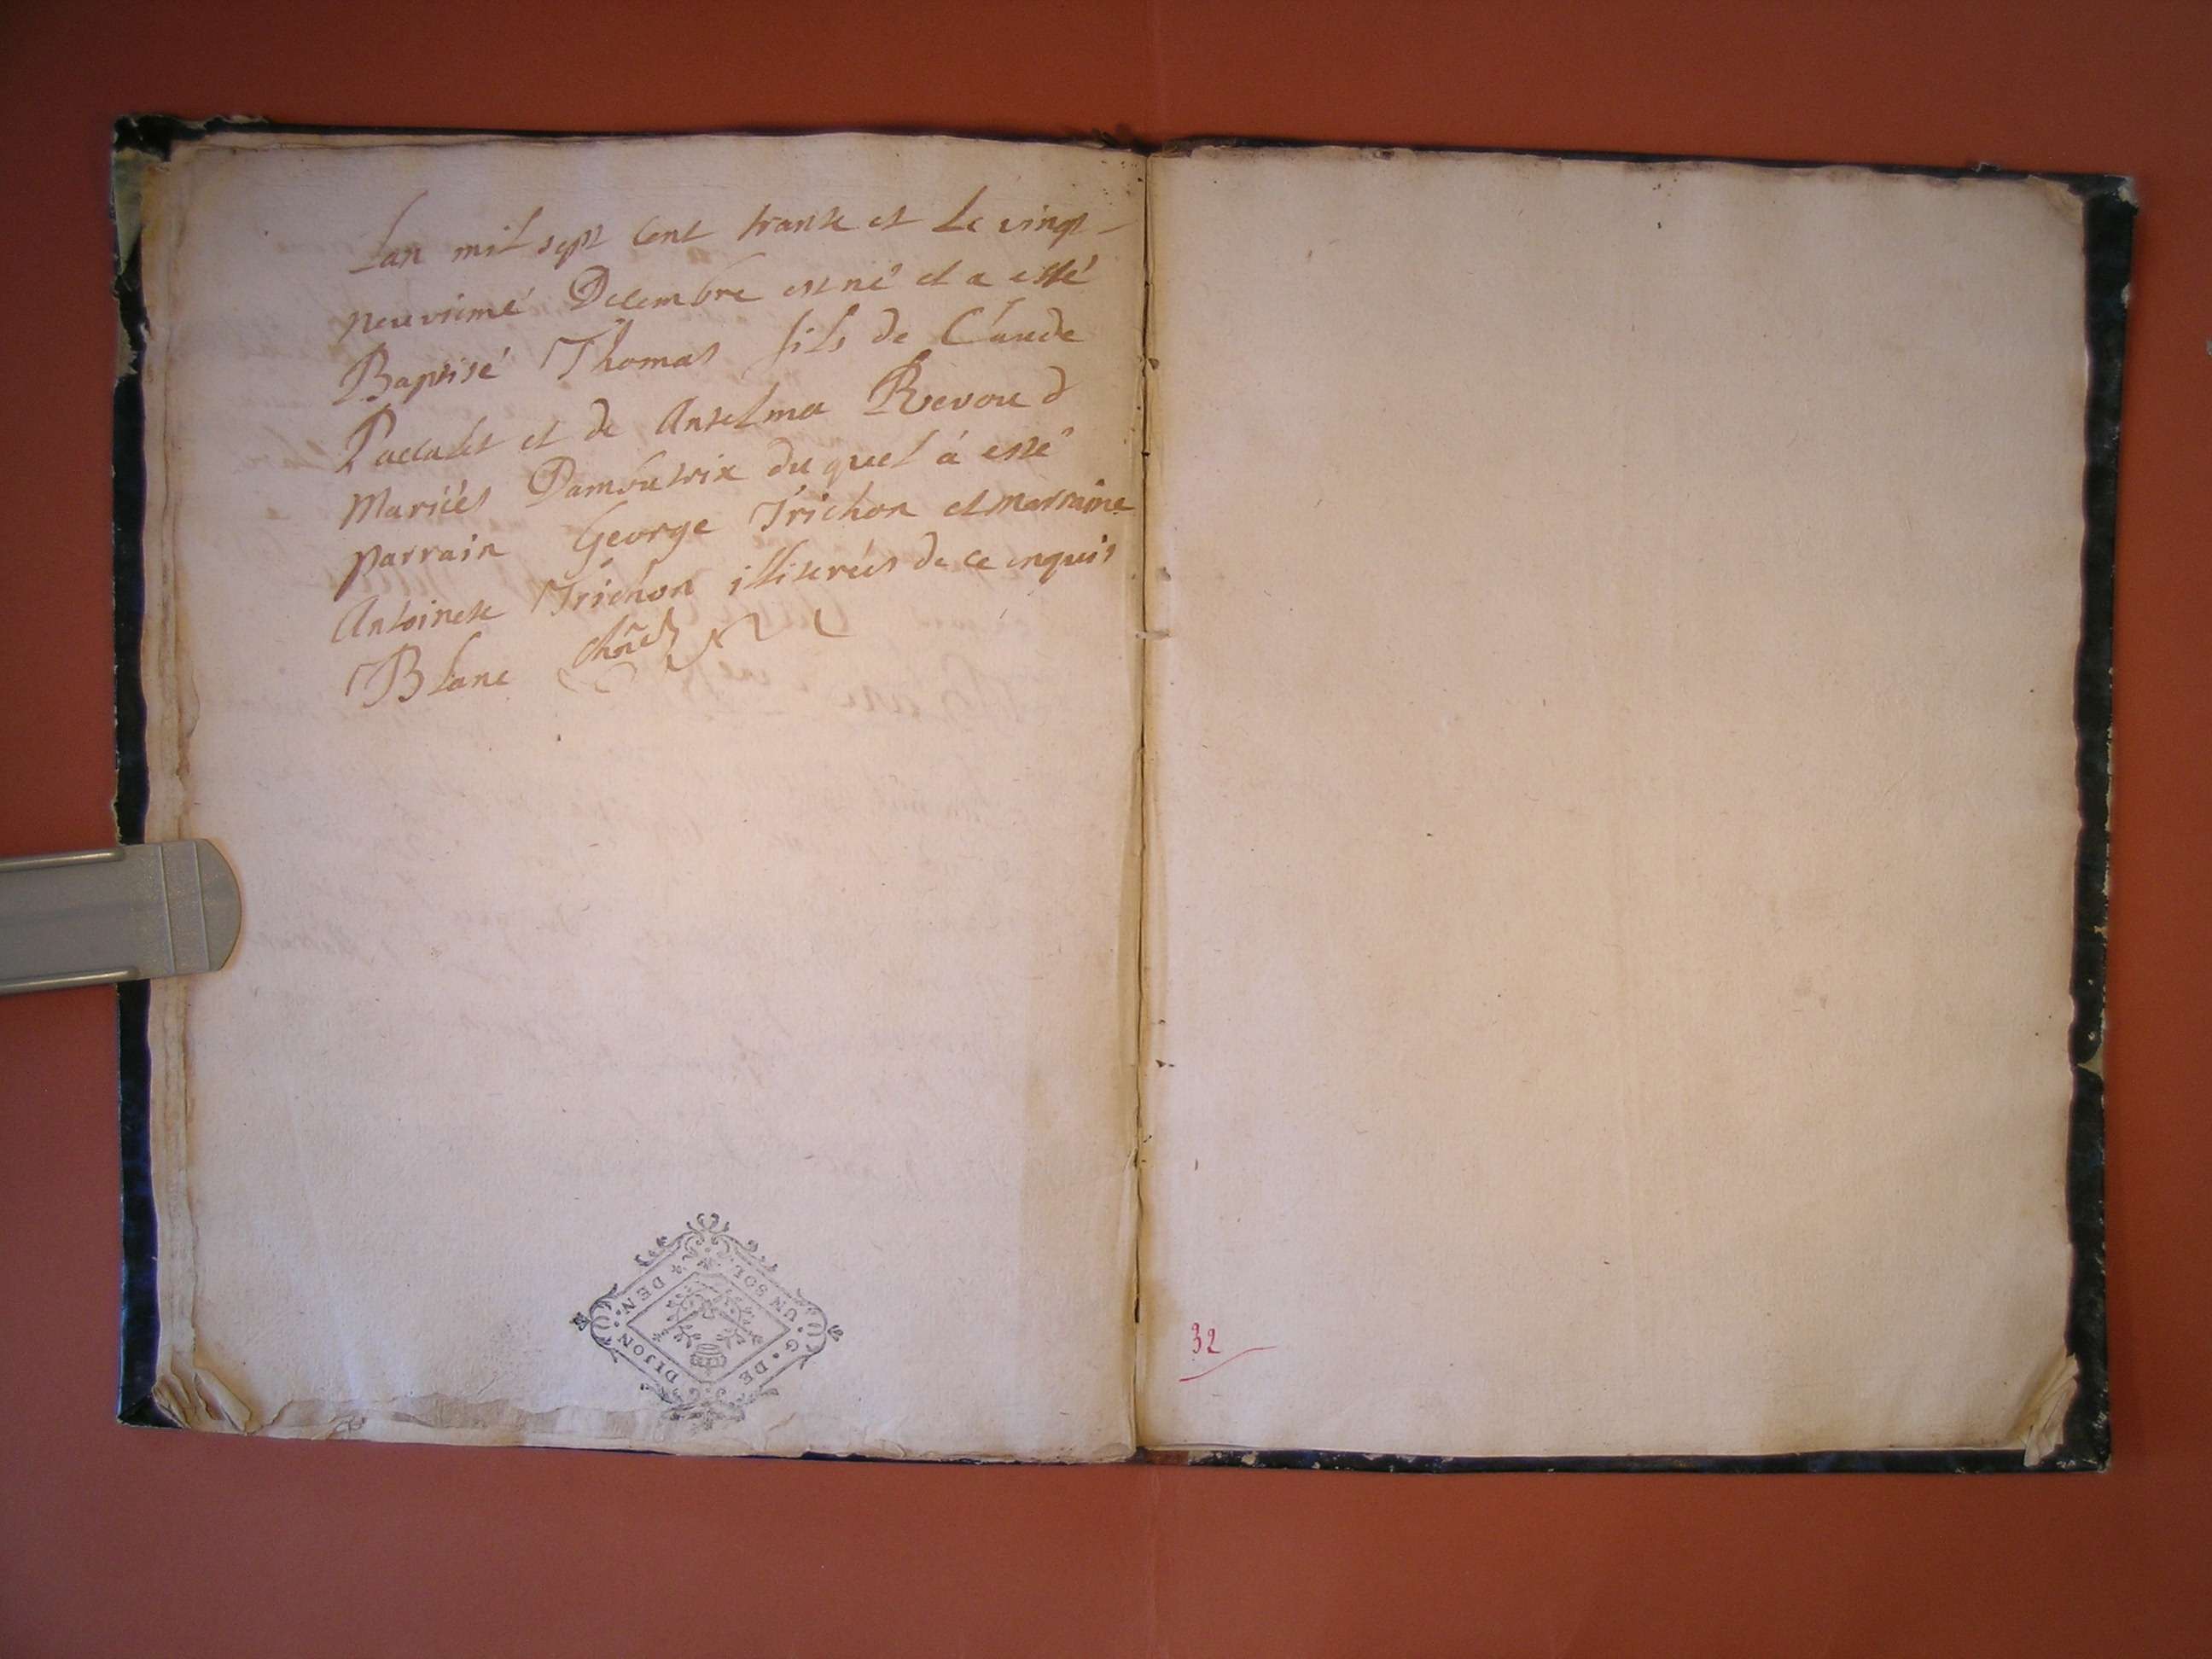 Lan mil sept cent trante et le vingt-
neuvieme Decembre est né et a esté
Baptisé Thomas fils de Claude
et de Anselma Revoud
Mariés Dambutrix du quel á esté
parrain George Trichon et marraine
Antoinete Trichon illiterées de ce enquis
Blanc
G. DE DIJON. UN SOL. * DEN.
32